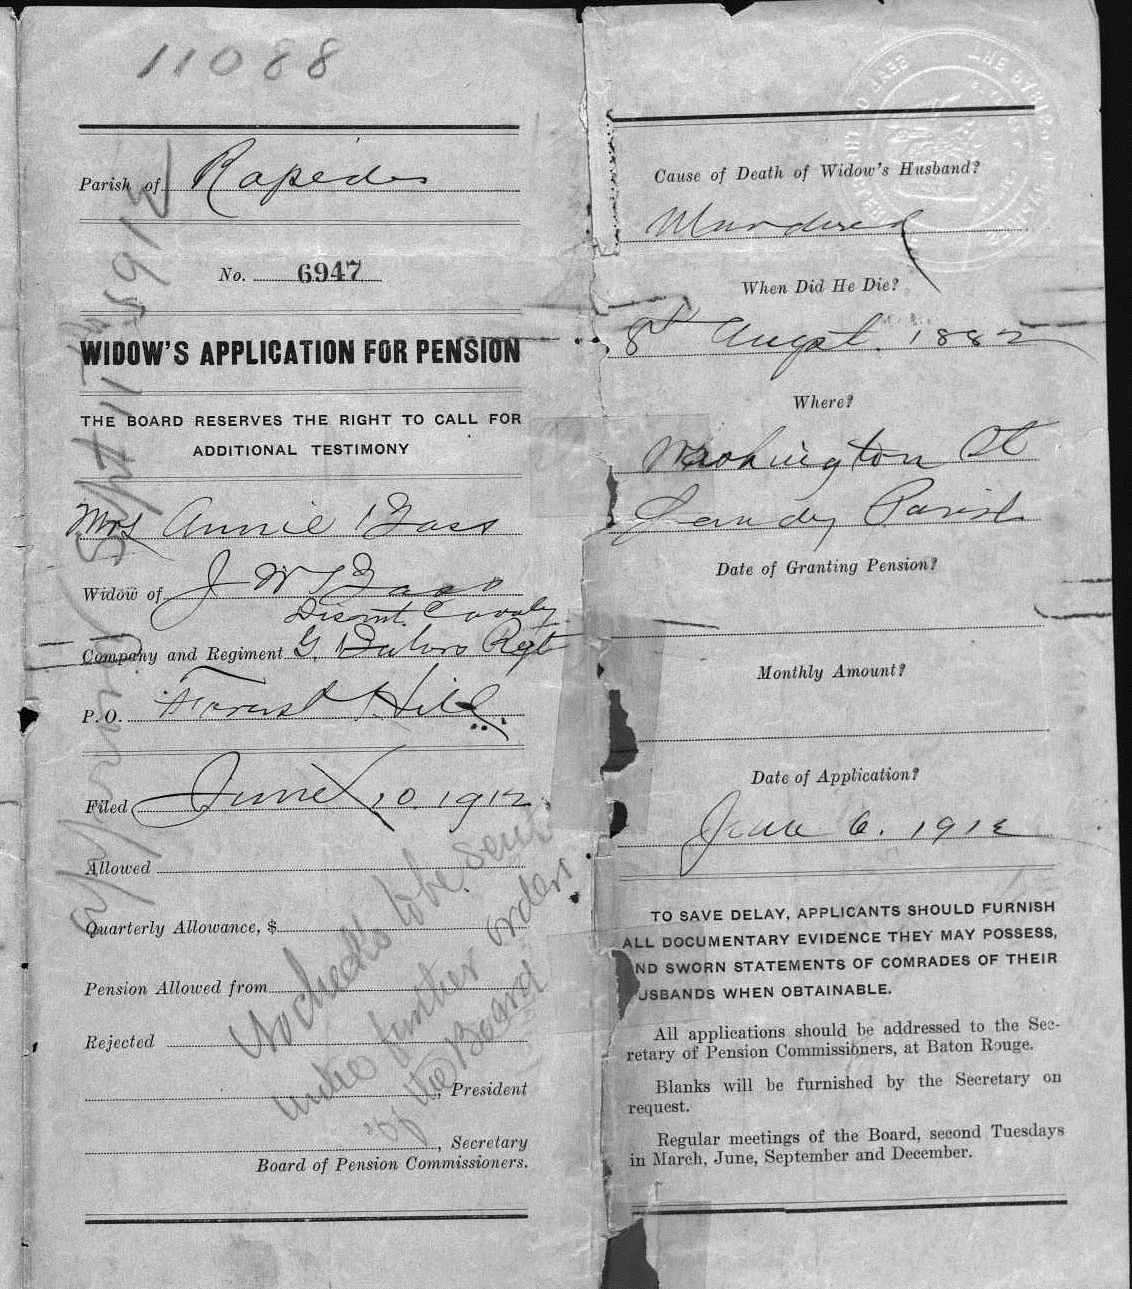 11088
Parish of Rapides
No. 6947
WIDOW'S APPLICATION FOR PENSION
THE BOARD RESERVES THE RIGHT TO CALL FOR
ADDITIONAL TESTIMONY
Mrs Annie Bass
Widow of J W Bass
Dismt. Cavalry
Company and Regiment G. Regt
P.O. Forest Hill
Filed June 10 1912
Allowed
Quarterly Allowance, $
Pension Allowed from
Rejected
, President
, Secretary
Board of Pension Commissioners.
No checks to be sent
until further orders
of the Board
Cause of Death of Widow's Husband?
Murdered
When Did He Die?
8th Augst. 1882
Where?
Washington St
Landry Parish
Date of Granting Pension?
Monthly Amount?
Date of Application?
June 6. 1912
TO SAVE DELAY, APPLICANTS SHOULD FURNISH
ALL DOCUMENTARY EVIDENCE THEY MAY POSSESS,
ND SWORN STATEMENTS OF COMRADES OF THEIR
USBANDS WHEN OBTAINABLE.
All applications should be addressed to the Sec-
retary of Pension Commissioners, at Baton Rouge.
Blanks will be furnished by the Secretary on
request.
Regular meetings of the Board, second Tuesdays
in March, June, September and December.